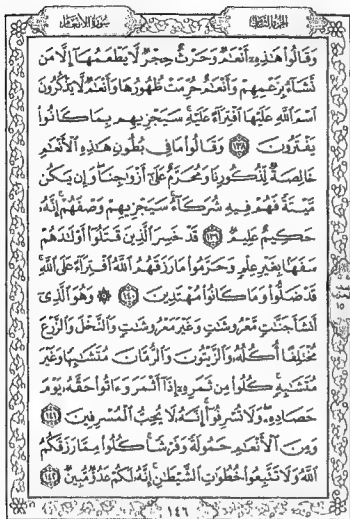 الجزء الثامن سورة الأنعام
وَقَالُوا۟ هَٰذِهِۦٓ أَنْعَٰمٌ وَحَرْثٌ حِجْرٌ لَّا يَطْعَمُهَآ إِلَّا مَن
نَّشَآءُ بِزَعْمِهِمْ وَأَنْعَٰمٌ حُرِّمَتْ ظُهُورُهَا وَأَنْعَٰمٌ لَّا يَذْكُرُونَ
ٱسْمَ ٱللَّهِ عَلَيْهَا ٱفْتِرَآءً عَلَيْهِ ۚ سَيَجْزِيهِم بِمَا كَانُوا۟
يَفْتَرُونَ ١٣٨ وَقَالُوا۟ مَا فِى بُطُونِ هَٰذِهِ ٱلْأَنْعَٰمِ
خَالِصَةٌ لِّذُكُورِنَا وَمُحَرَّمٌ عَلَىٰٓ أَزْوَٰجِنَا ۖ وَإِن يَكُن
مَّيْتَةً فَهُمْ فِيهِ شُرَكَآءُ ۚ سَيَجْزِيهِمْ وَصْفَهُمْ ۚ إِنَّهُۥ
حَكِيمٌ عَلِيمٌ ١٣٩ قَدْ خَسِرَ ٱلَّذِينَ قَتَلُوٓا۟ أَوْلَٰدَهُمْ
سَفَهًۢا بِغَيْرِ عِلْمٍ وَحَرَّمُوا۟ مَا رَزَقَهُمُ ٱللَّهُ ٱفْتِرَآءً عَلَى ٱللَّهِ ۚ
قَدْ ضَلُّوا۟ وَمَا كَانُوا۟ مُهْتَدِينَ ١٤٠ ۞ وَهُوَ ٱلَّذِىٓ
أَنشَأَ جَنَّٰتٍ مَّعْرُوشَٰتٍ وَغَيْرَ مَعْرُوشَٰتٍ وَٱلنَّخْلَ وَٱلزَّرْعَ
مُخْتَلِفًا أُكُلُهُۥ وَٱلزَّيْتُونَ وَٱلرُّمَّانَ مُتَشَٰبِهًا وَغَيْرَ
مُتَشَٰبِهٍ ۚ كُلُوا۟ مِن ثَمَرِهِۦٓ إِذَآ أَثْمَرَ وَءَاتُوا۟ حَقَّهُۥ يَوْمَ
حَصَادِهِۦ ۖ وَلَا تُسْرِفُوٓا۟ ۚ إِنَّهُۥ لَا يُحِبُّ ٱلْمُسْرِفِينَ ١٤١
وَمِنَ ٱلْأَنْعَٰمِ حَمُولَةً وَفَرْشًا ۚ كُلُوا۟ مِمَّا رَزَقَكُمُ
ٱللَّهُ وَلَا تَتَّبِعُوا۟ خُطُوَٰتِ ٱلشَّيْطَٰنِ ۚ إِنَّهُۥ لَكُمْ عَدُوٌّ مُّبِينٌ ١٤٢
١٤٦